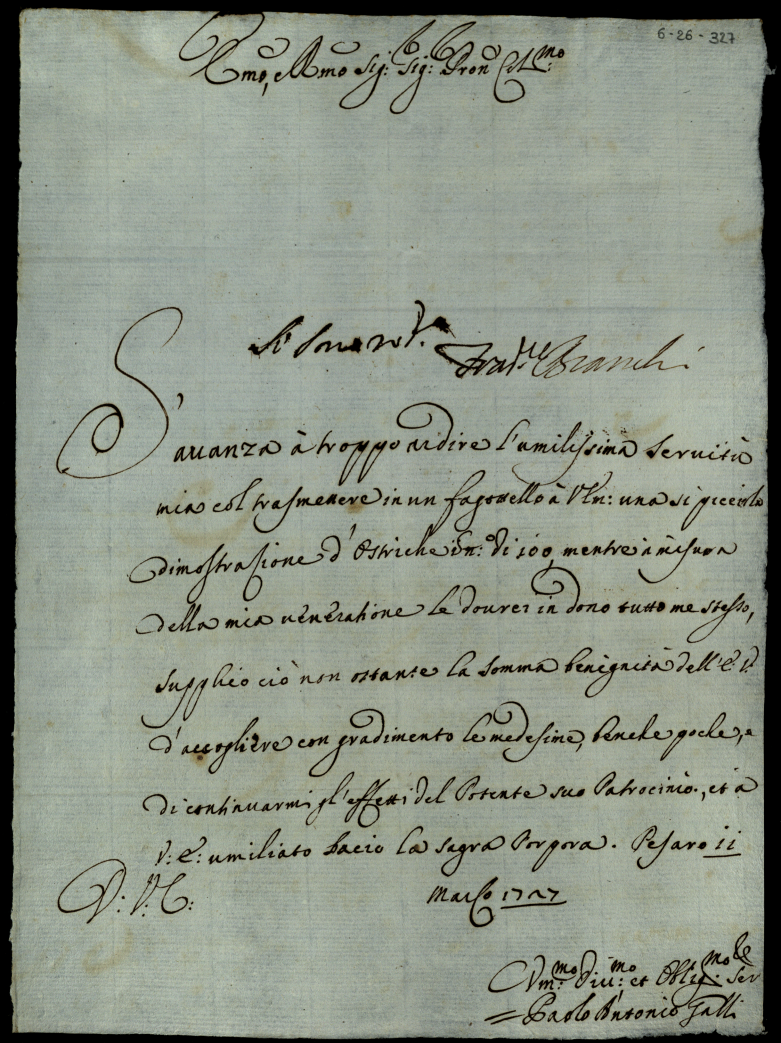 6-26-327
Emo, e Rmo Sig: Sig: Pron Col:mo
Si sono
Frat.lli Bianchi
S'auanza à troppo ardire l'umilissima seruitù
mia col trasmettere in un fagottello à V'Em: una sì piccola
dimostrasione d'Ostriche in n: di 100, mentre à misura
della mia ueneratione le dourei in dono tutto me stesso,
supplico ciò non ostante la somma benignità dell'E: V:
d'accogliere con gradimento le medesime, benche poche, e
di continuarmi gl'effetti del Potente suo Patrocinio, et à
V: E: umiliato bacio la sagra Porpora. Pesaro 11
Marso 1727
D: V: E:
Vm:mo Diu:mo et Oblig:mo Ser:le
= Paolo Antonio Galli